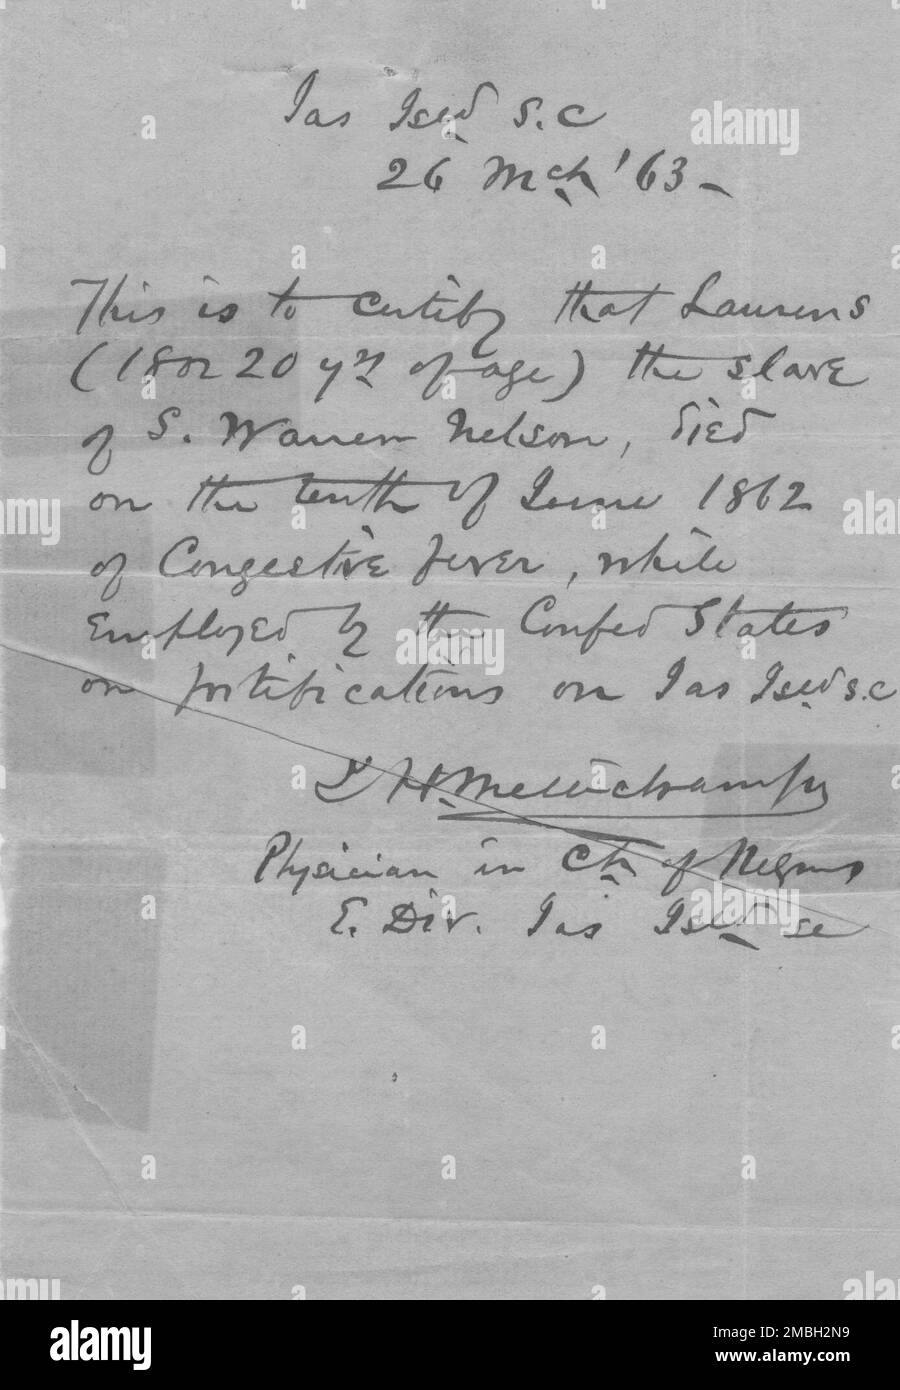 Jas Isld S.C
26 Mch '63 -
This is to certify that Laurens
(18 or 20 yrs of age) the slave
of S. Warren Nelson, died
on the tenth of June 1862
of Congestive fever, while
employed by the Confed States
on fortifications on Jas Isld S.C
H. Mellichamp
Physician in Ch of Negroes
E. Div. Jas Isld SC
alamy
alamy
Image ID: 2MBH2N9
www.alamy.com